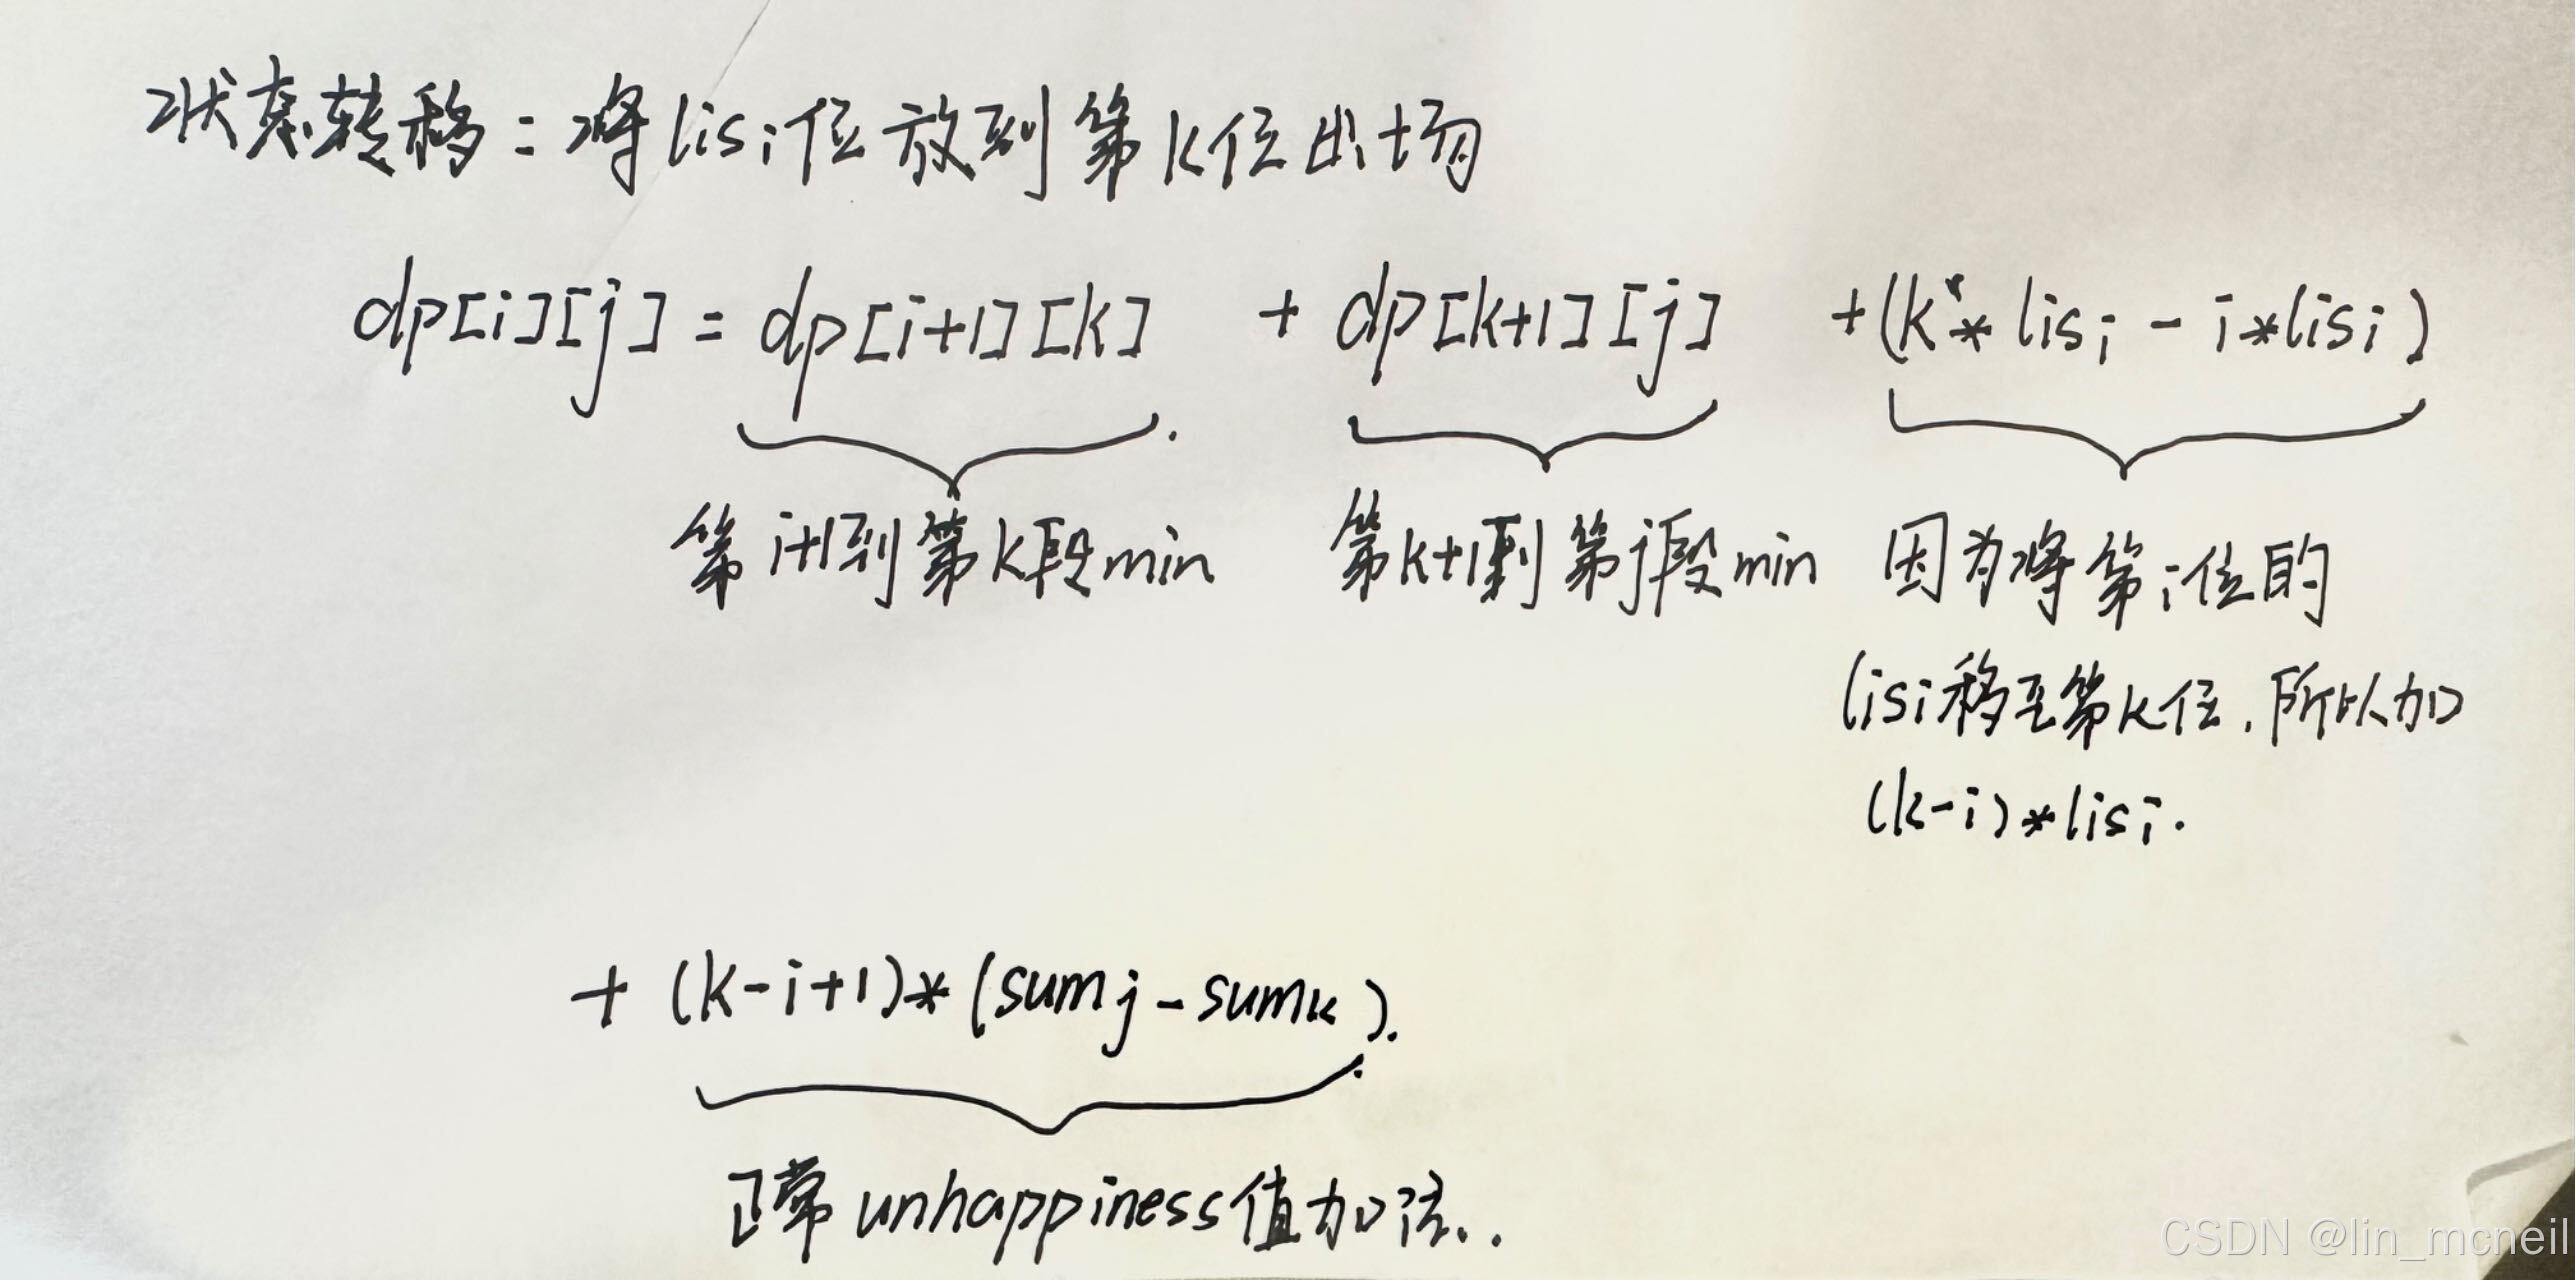 状态转移：将lisi位放到第k位出场
dp[i][j] = dp[i+1][k] + dp[k+1][j] +(k*lisi - i*lisi)
第i+1到第k段min 第k+1到第j段min 因为将第i位的
lisi移至第k位，所以加
(k-i)*lisi.
+ (k-i+1)*(sumj-sumk).
正常unhappiness值加法..
CSDN @lin_mcneil